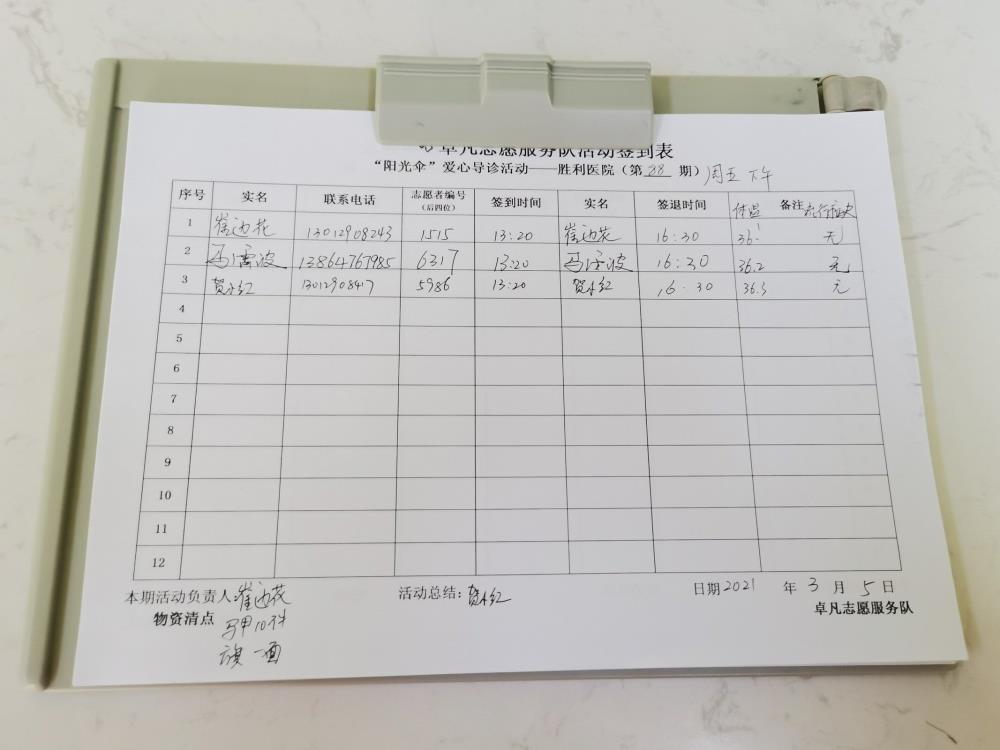 卓凡志愿服务队活动签到表
“阳光伞”爱心导诊活动——胜利医院（第88期）周五下午
序号 实名 联系电话 志愿者编号（后四位） 签到时间 实名 签退时间 体温 备注 流行病史
1 崔迎花 13012908243 1515 13:20 崔迎花 16:30 36.1 无
2 马溪波 13864767985 6317 13:20 马溪波 16:30 36.2 无
3 贺小红 1301290847 5986 13:20 贺小红 16:30 36.5 无
4
5
6
7
8
9
10
11
12
本期活动负责人 崔迎花 活动总结：贺小红 日期 2021 年 3 月 5 日
物资清点 马甲10件 卓凡志愿服务队
旗一面